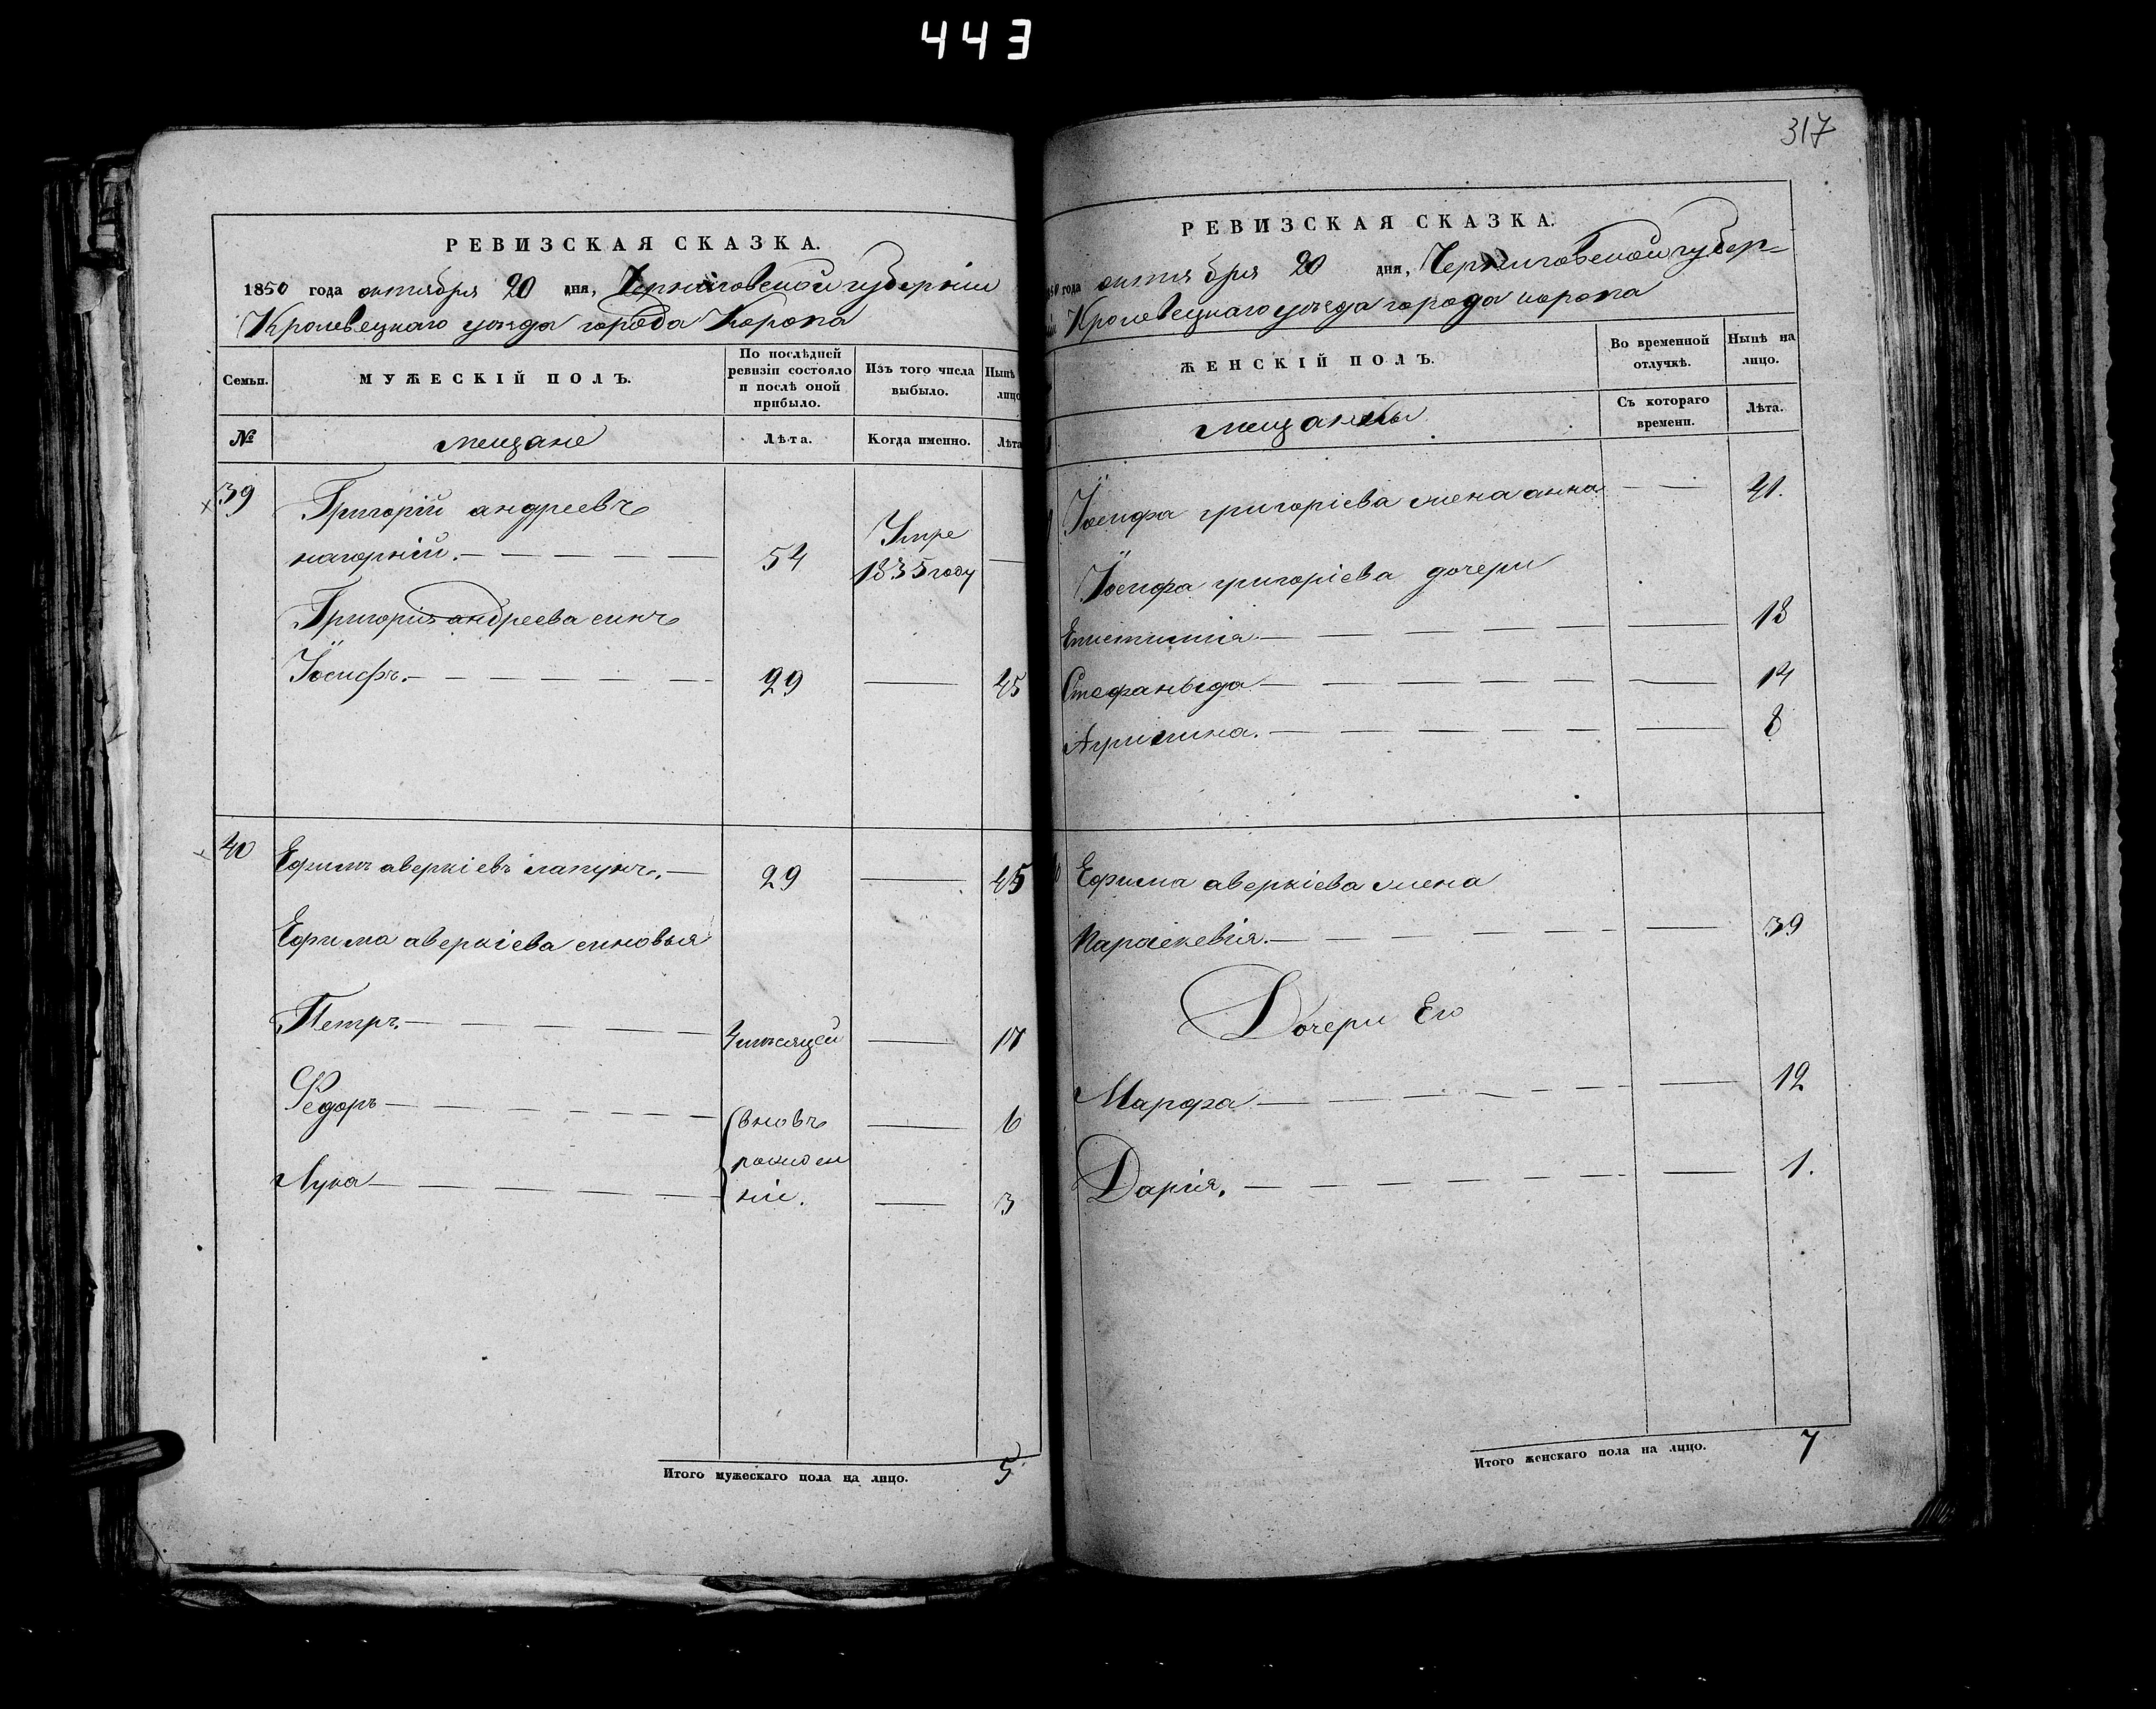 443
РЕВИЗСКАЯ СКАЗКА.
1850 года октября 20 дня, Черниговской губерніи
Кролевецкаго уезда города Коропа
Семьи.
МУЖЕСКІЙ ПОЛЪ.
По послѣдней ревизіи состояло и послѣ оной прибыло.
Изъ того числа выбыло.
Нынѣ
лицо
№
мещане
Лѣта.
Когда именно.
Лѣта
39
Григорій андреевъ
нагорній. 54 Умре 1835 году
Григорія андреева синъ
Іосифъ. 29 45
40 Ефимъ аверкіевъ лапунъ. 29 45
Ефима аверкіева синовья
Петръ. 4 месяцей 17
Федоръ вновь 6
рожден
Лука ніи. 3
Итого мужескаго пола на лицо. 5
317
РЕВИЗСКАЯ СКАЗКА.
1850 года октября 20 дня, Черниговской губер-
ніи Кролевецкаго уезда города коропа
ЖЕНСКІЙ ПОЛЪ.
Во временной отлучкѣ.
Нынѣ на лицо.
мещанки
Съ котораго времени.
Лѣта.
Іосифа григоріева жена анна 41.
Іосифа григоріева дочери
Епистимія 18
Стефанида 14
Агрипина. 8
Ефима аверкіева жена
Параскевія. 39
Дочери Его
Марфа 12
Дарія. 1.
Итого женскаго пола на лицо. 7